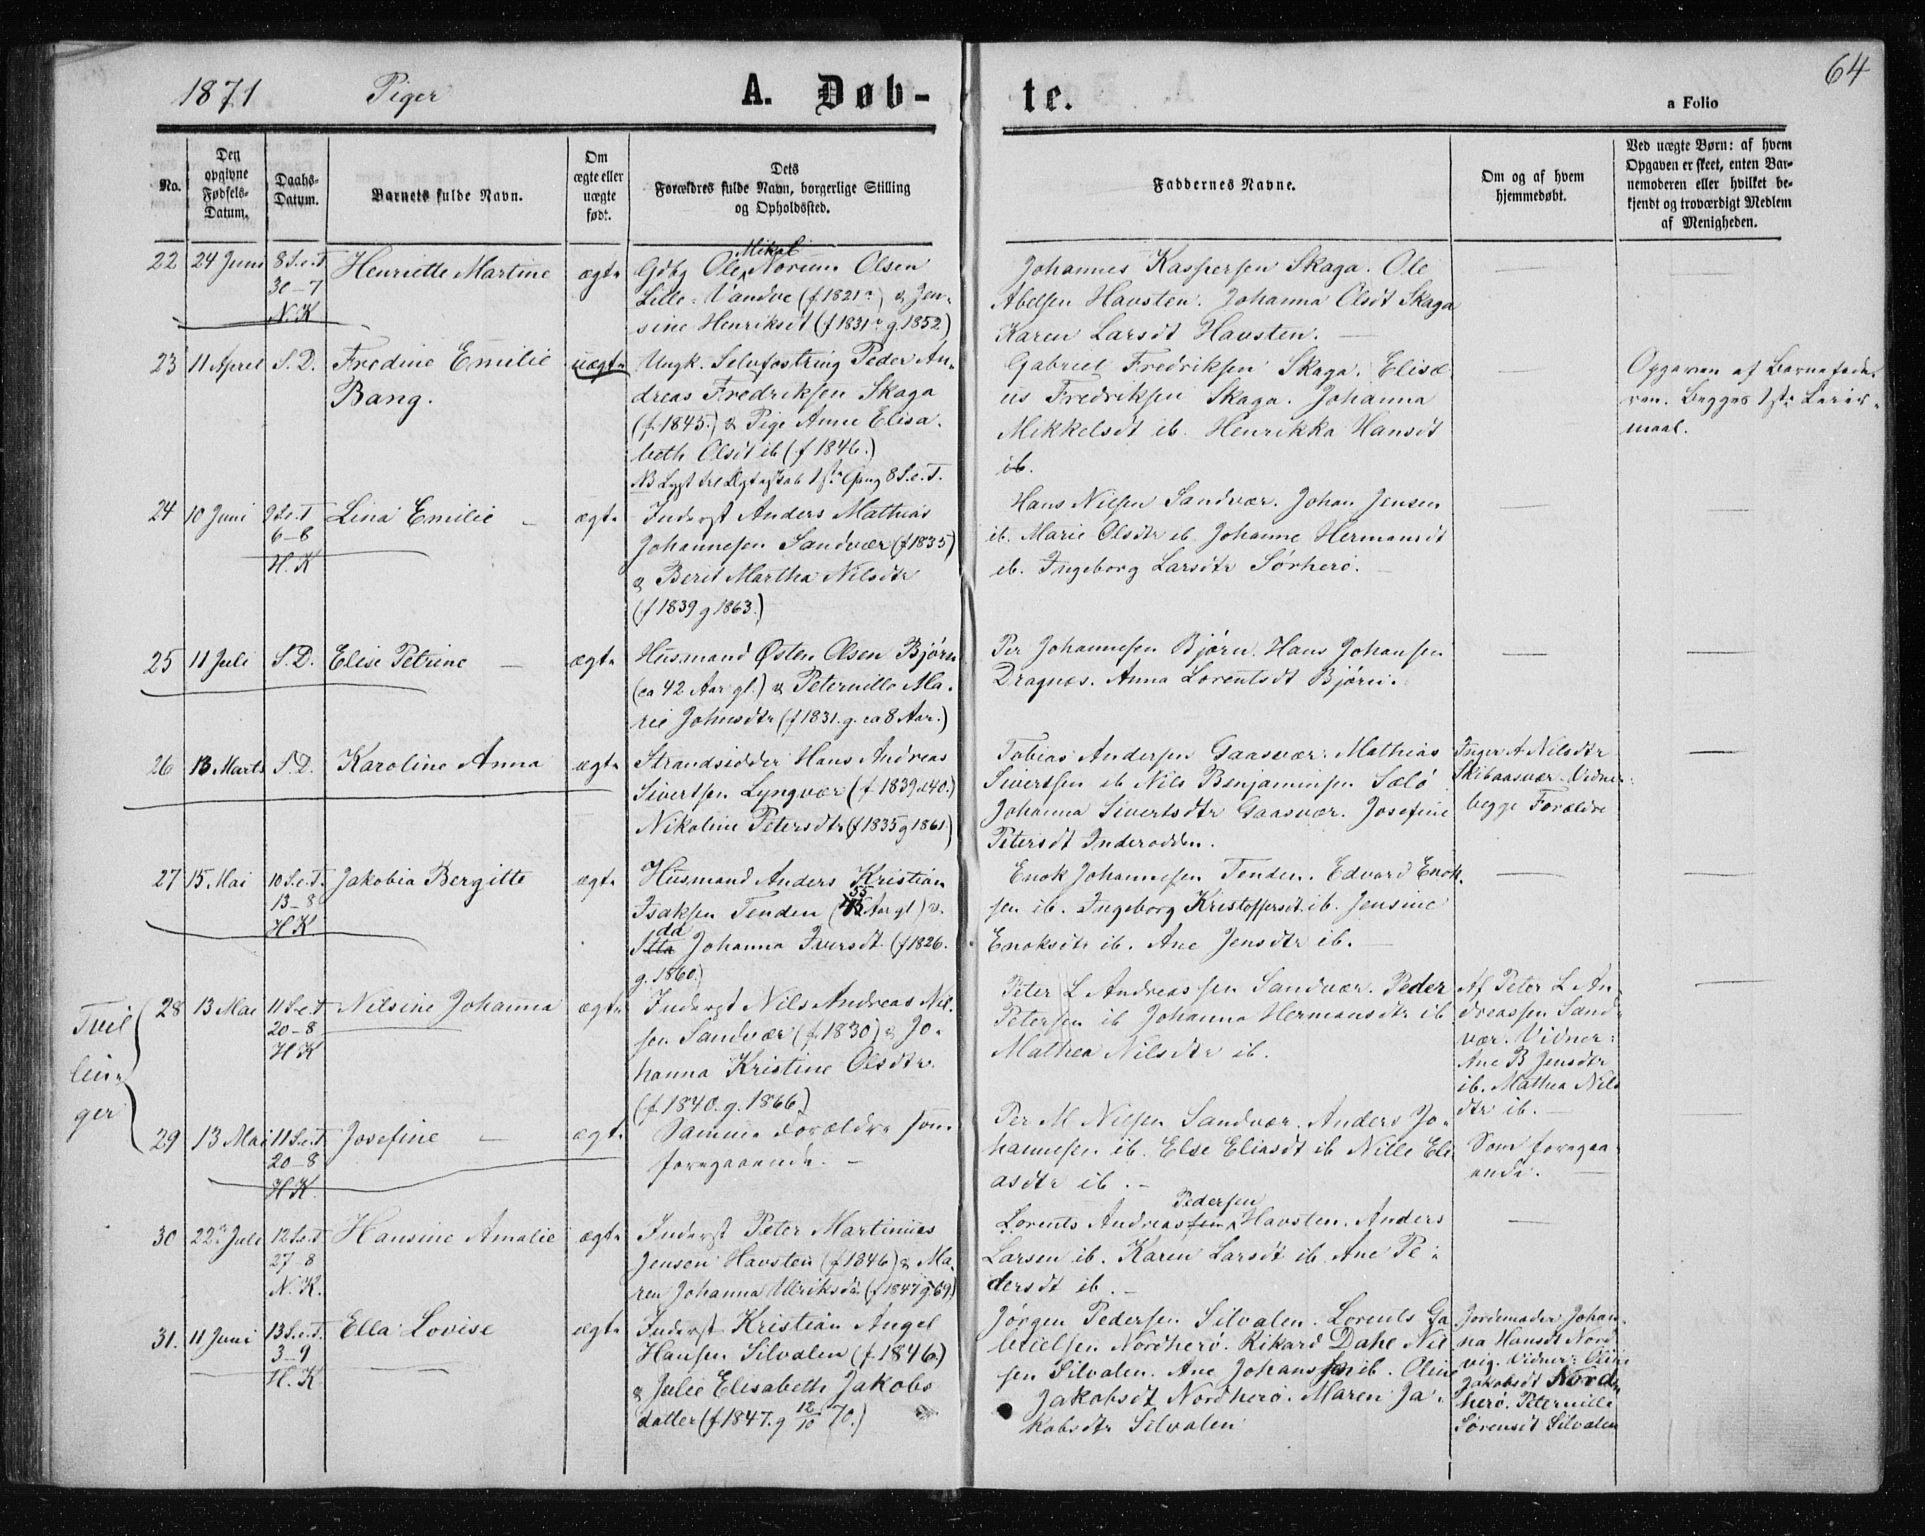 1871 Piger A. Døb- te. 64
a Folio
No.
Den opgivne Fødsels-Datum.
Daabs-Datum.
Barnets fulde Navn.
Om ægte eller uægte født.
Dets Forældres fulde Navn, borgerlige Stilling og Opholdssted.
Faddernes Navne.
Om og af hvem hjemmedøbt.
Ved uægte Børn: af hvem Opgaven er skeet, enten Barnemoderen eller hvilket bekjendt og troværdigt Medlem af Menigheden.
22 24 Juni 8 S.e.T. 30-7 N.K Henriette Martine ægte
Gdbg Ole Mikal Norum Olsen
Lille-Vandve (f 1821) & Jen-
sine Henriksdt (f 1831 g. 1852)
Johannes Kaspersen Skaga. Ole
Abelsen Havsten. Johanna Olsdt Skaga
Karen Larsdt Havsten. —
23 11 April S.D. Fredine Emilie
Bang. uægte
Ungk. Selvfostring Peder An-
dreas Fredriksen Skaga
(f. 1845.) & Pige Anne Elisa-
beth Olsdt ib (f 1846.)
NB Lyst til Ægteskab 1ste Gang 8 S.e.T.
Gabriel Fredriksen Skaga. Elisæ-
us Fredriksen Skaga. Johanna
Mikkelsdt ib. Henrikka Hansdt
ib.
Opgaven af Barnefade-
ren. Begges 1ste Leier-
maal.
24 10 Juni 9 S.e.T 6-8 H.K Lina Emilie — ægte
Inderst Anders Mathias
Johannesen Sandvær (f 1835)
& Berit Martha Nilsdtr
(f 1839 g 1863.)
Hans Nilsen Sandvær. Johan Jensen
ib. Marie Olsdtr ib. Johanne Hermansdt
ib. Ingeborg Larsdtr Sørherø. —
25 11 Juli S.D. Elise Petrine — ægte
Husmand Østen Olsen Bjørn
(ca 42 Aar gl.) & Peternille Ma-
rie Johnsdtr (f 1831. g. ca 8 Aar.)
Per Johannesen Bjørn. Hans Johansen
Dragnæs. Anna Lorentsdt Bjørn.
26 13 Marts S.D. Karoline Anna ægte
Strandsidder Hans Andreas
Sivertsen Lyngvær (f 1839 & 40.)
Nikoline Petersdtr (f 1835 g 1861)
Tobias Andersen Gaasvær. Mathias
Sivertsen ib Nils Benjaminsen Sølø
Johanna Sivertsdtr Gaasvær. Josefine
Petersdt Inderodden.
Inger A Nilsdtr
Skibaasvær. Vidner:
begge Forældre
27 15 Mai 10 S.e.T. 13-8 H.K. Jakobia Bergitte ægte
Husmand Anders Kristian
Isaksen Tenden (55 Aar gl) &
Johanna Iversdt (f 1826.
g. 1860.)
Enok Johannesen Tenden. Edvard Enok-
sen ib. Ingeborg Kristoffersdt ib. Jensine
Enoksdtr ib. Ane Jensdtr ib. —
Tvil-
lin-
ger
28 13 Mai 11 S.e.T 20-8 H K Nilsine Johanna ægte
Inderst Nils Andreas Nil-
sen Sandvær (f. 1830) & Jo-
hanna Kristine Olsdtr.
(f. 1840. g. 1866.)
Peter L Andreassen Sandvær. Peder
Petersen ib Johanna Hermansdtr ib.
Mathea Nilsdtr ib.
Af Peter L An-
dreassen Sand-
vær. Vidner:
Ane B Jensdtr
ib. Mathea Nils-
dtr ib. —
29 13 Mai 11 S.e.T 20-8 H K. Josefine — ægte
Samme Forældre som
foregaaende. —
Per M Nilsen Sandvær. Anders Jo-
hannesen ib. Else Eliasdt ib Nille Eli-
asdtr ib. —
Som foregaa-
ende.
30 22de Juli 12 S.e.T 27-8 N.K. Hansine Amalie ægte
Inderst Peter Martinus
Jensen Havsten (f 1846) & Ma-
ren Johanna Ulriksdt (f 1847 g 69)
Lorents Andreassen Pedersen Havsten. Anders
Larsen ib. Karen Larsdt ib. Ane Pe-
dersdt ib. —
31. 11 Juni 13 S.e.T. 3-9 H. K Ella Lovise ægte
Inderst Kristian Angel
Hansen Silvalen (f. 1846)
& Julie Elisabeth Jakobs
datter (f 1847. g 12/10 70.)
Jørgen Pedersen Silvalen. Lorents Ga-
brielsen Nordherø. Rikard Dahl Nil-
sen Silvalen. Ane Johansdtr ib. Oline
Jakobsdt Nordherø. Maren Ja-
kobsdtr Silvalen
Jordemoder Johan-
na Hansdt Nord-
vig. Vidner: Oline
Jakobsdt Nord-
herø. Peternille
Sørensdt Silvalen